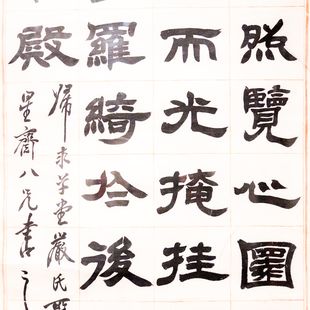 照覽心圖
而光掩挂
羅綺於後
殿
歸求草堂嚴氏
星齋八兄書之